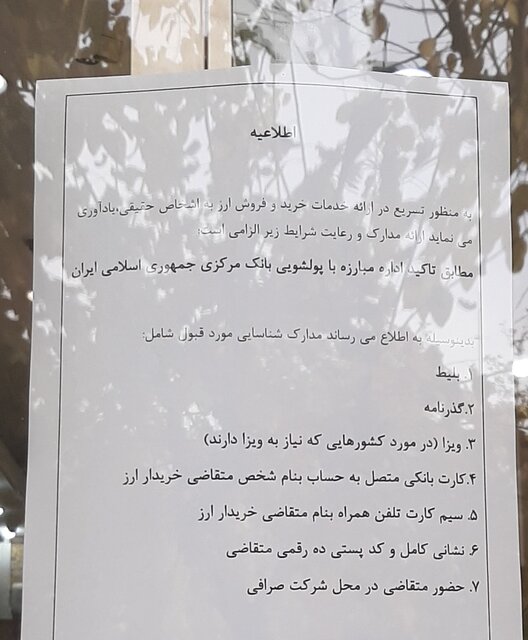 اطلاعیه
به منظور تسریع در ارائه خدمات خرید و فروش ارز به اشخاص حقیقی،یادآوری
می نماید ارائه مدارک و رعایت شرایط زیر الزامی است؛
مطابق تاکید اداره مبارزه با پولشویی بانک مرکزی جمهوری اسلامی ایران
بدینوسیله به اطلاع می رساند مدارک شناسایی مورد قبول شامل:
۱. بلیط
۲.گذرنامه
۳. ویزا (در مورد کشورهایی که نیاز به ویزا دارند)
۴.کارت بانکی متصل به حساب بنام شخص متقاضی خریدار ارز
۵. سیم کارت تلفن همراه بنام متقاضی خریدار ارز
۶. نشانی کامل و کد پستی ده رقمی متقاضی
۷. حضور متقاضی در محل شرکت صرافی